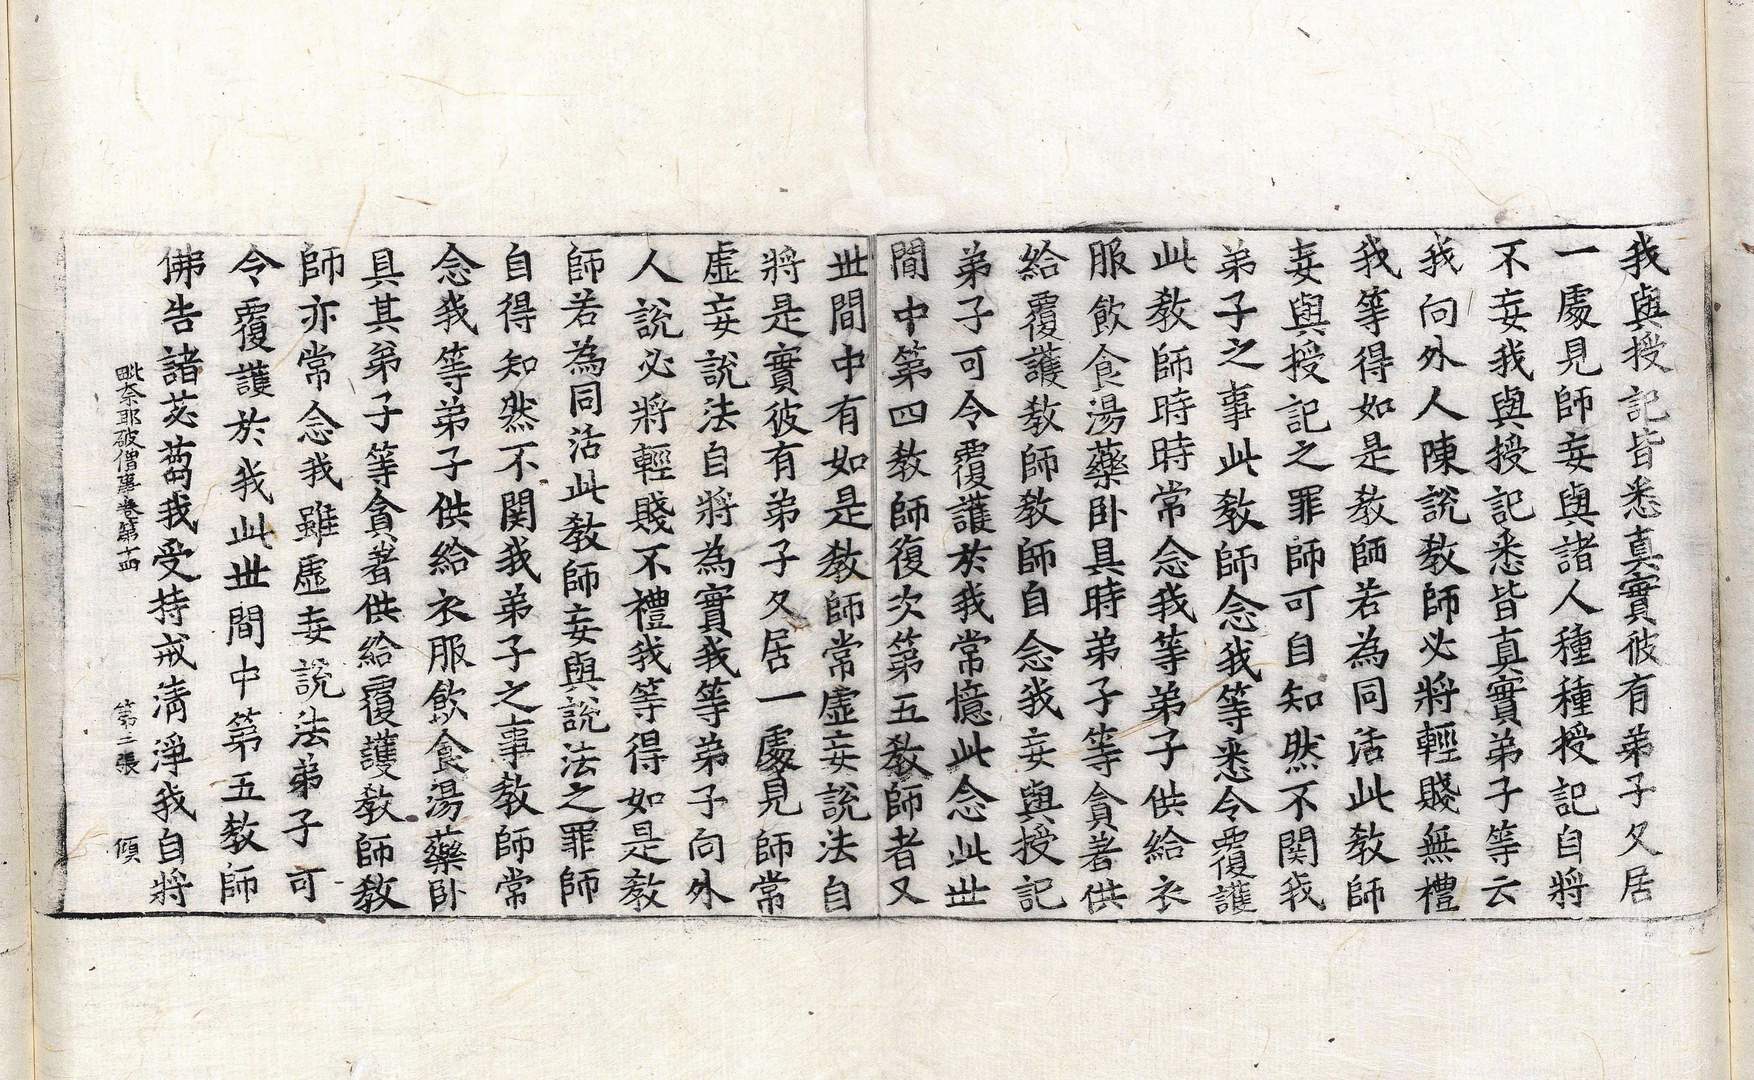 我與授記皆悉真實彼有弟子久居
一處見師妄與諸人種種授記自將
不妄我與授記悉皆真實弟子等云
我向外人陳說教師必將輕賤無禮
我等得如是教師若為同活此教師
妄與授記之罪師可自知然不關我
弟子之事此教師念我等悉令覆護
此教師時時常念我等弟子供給衣
服飲食湯藥卧具時弟子等貪著供
給覆護教師教師自念我妄與授記
弟子可令覆護於我常憶此念此世
間中第四教師復次第五教師者又
世間中有如是教師常虛妄說法自
將是實彼有弟子久居一處見師常
虛妄說法自將為實我等弟子向外
人說必將輕賤不禮我等得如是教
師若為同活此教師妄與說法之罪師
自得知然不關我弟子之事教師常
念我等弟子供給衣服飲食湯藥卧
具其弟子等貪著供給覆護教師教
師亦常念我雖虛妄說法弟子可
令覆護於我此世間中第五教師
佛告諸苾蒭我受持戒清淨我自將
毗奈耶破僧事卷第十四 第三張 傾